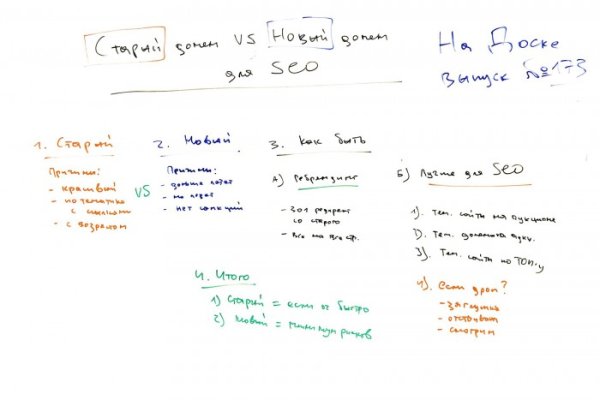 Старый домен VS Новый домен
для SEO
На Доске
выпуск №173
1. Старый
Причины:
- красивый
- по тематике
с ссылками
- с возрастом
VS
2. Новый
Причины:
- дольше
- нет санкций
3. Как быть
А) Ребрендинг
- 301 редирект
со старого
- все на все стр.
Б) Лучше для SEO
1). Тем. сайты на аукционе
2). Тем. домены аукц.
3). Тем. сайты по ТОП-у
4). Если дроп?
- заглушка
- отстаиваем
- смотрим
4. Итого
1) Старый = если оч быстро
2) Новый = минимум рисков